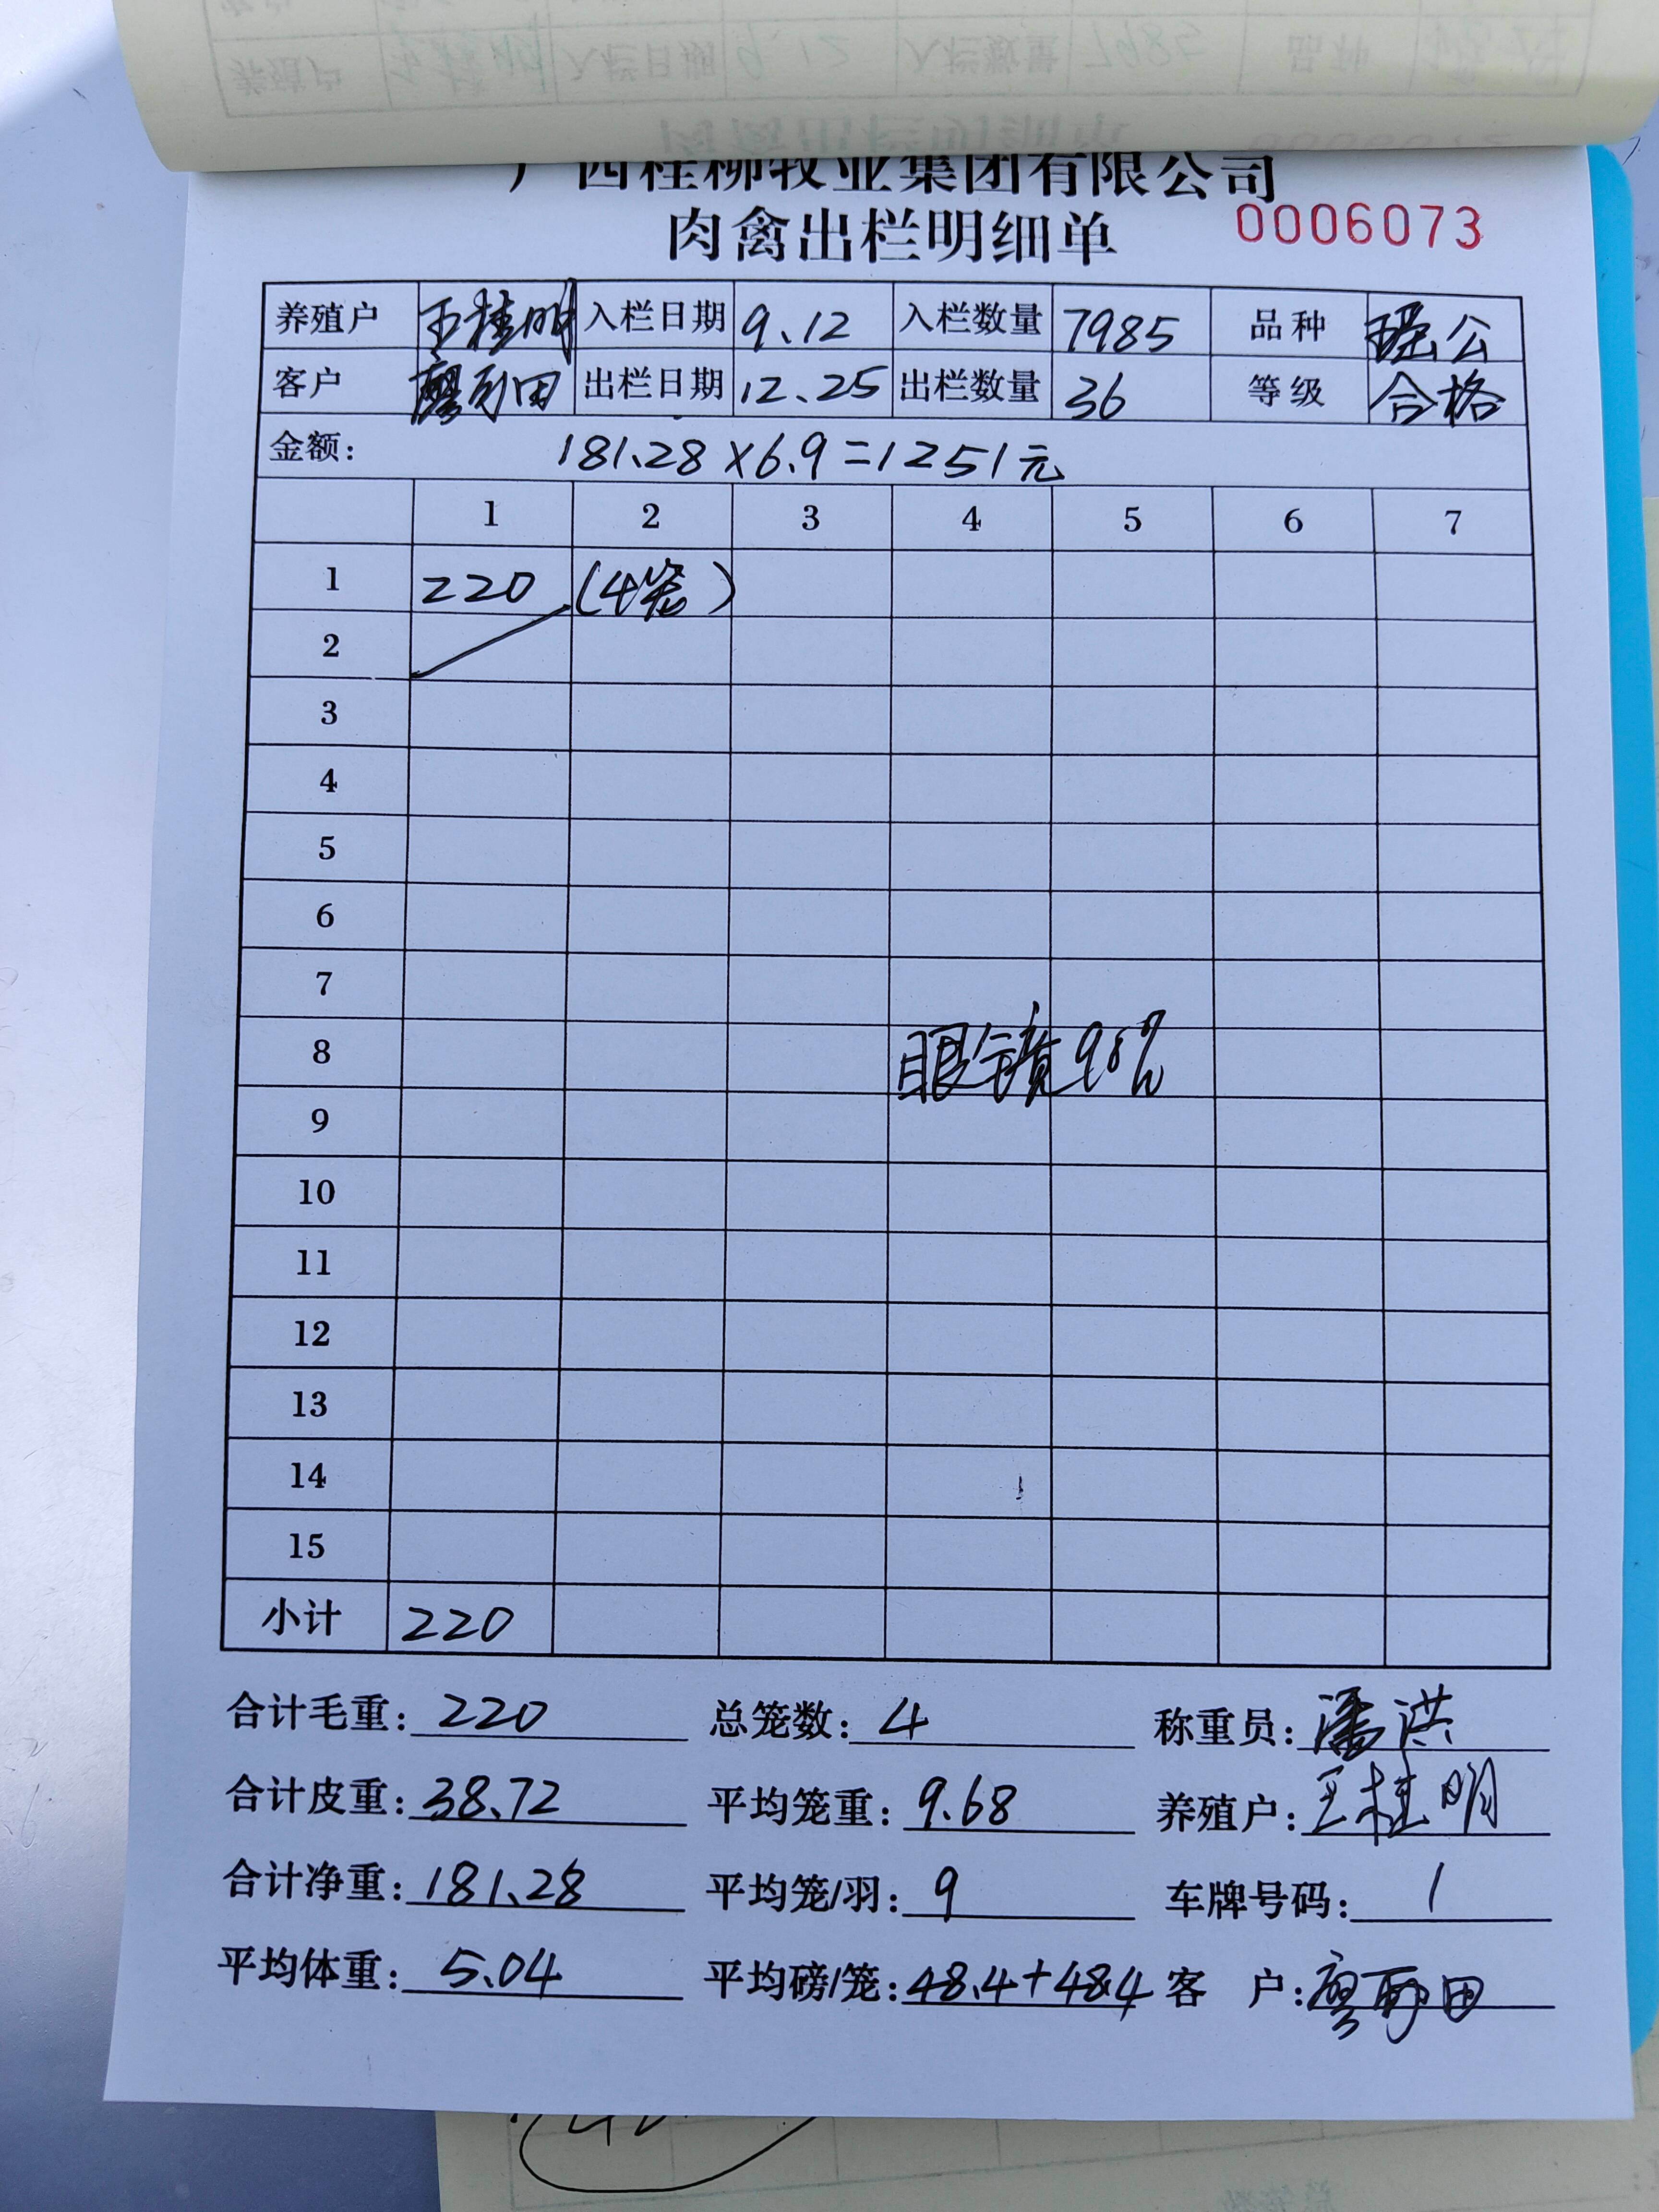 广西桂柳牧业集团有限公司
肉禽出栏明细单 0006073
养殖户 王桂明 入栏日期 9.12 入栏数量 7985 品种 瑶公
客户 出栏日期 12.25 出栏数量 36 等级 合格
金额: 181.28×6.9=1251元
1 2 3 4 5 6 7
1 220 (4笼)
2
3
4
5
6
7
8 眼镜98%
9
10
11
12
13
14
15
小计 220
合计毛重: 220 总笼数: 4 称重员: 潘洪
合计皮重: 38.72 平均笼重: 9.68 养殖户: 王桂明
合计净重: 181.28 平均笼/羽: 9 车牌号码: 1
平均体重: 5.04 平均磅/笼: 48.4+48.4 客 户: